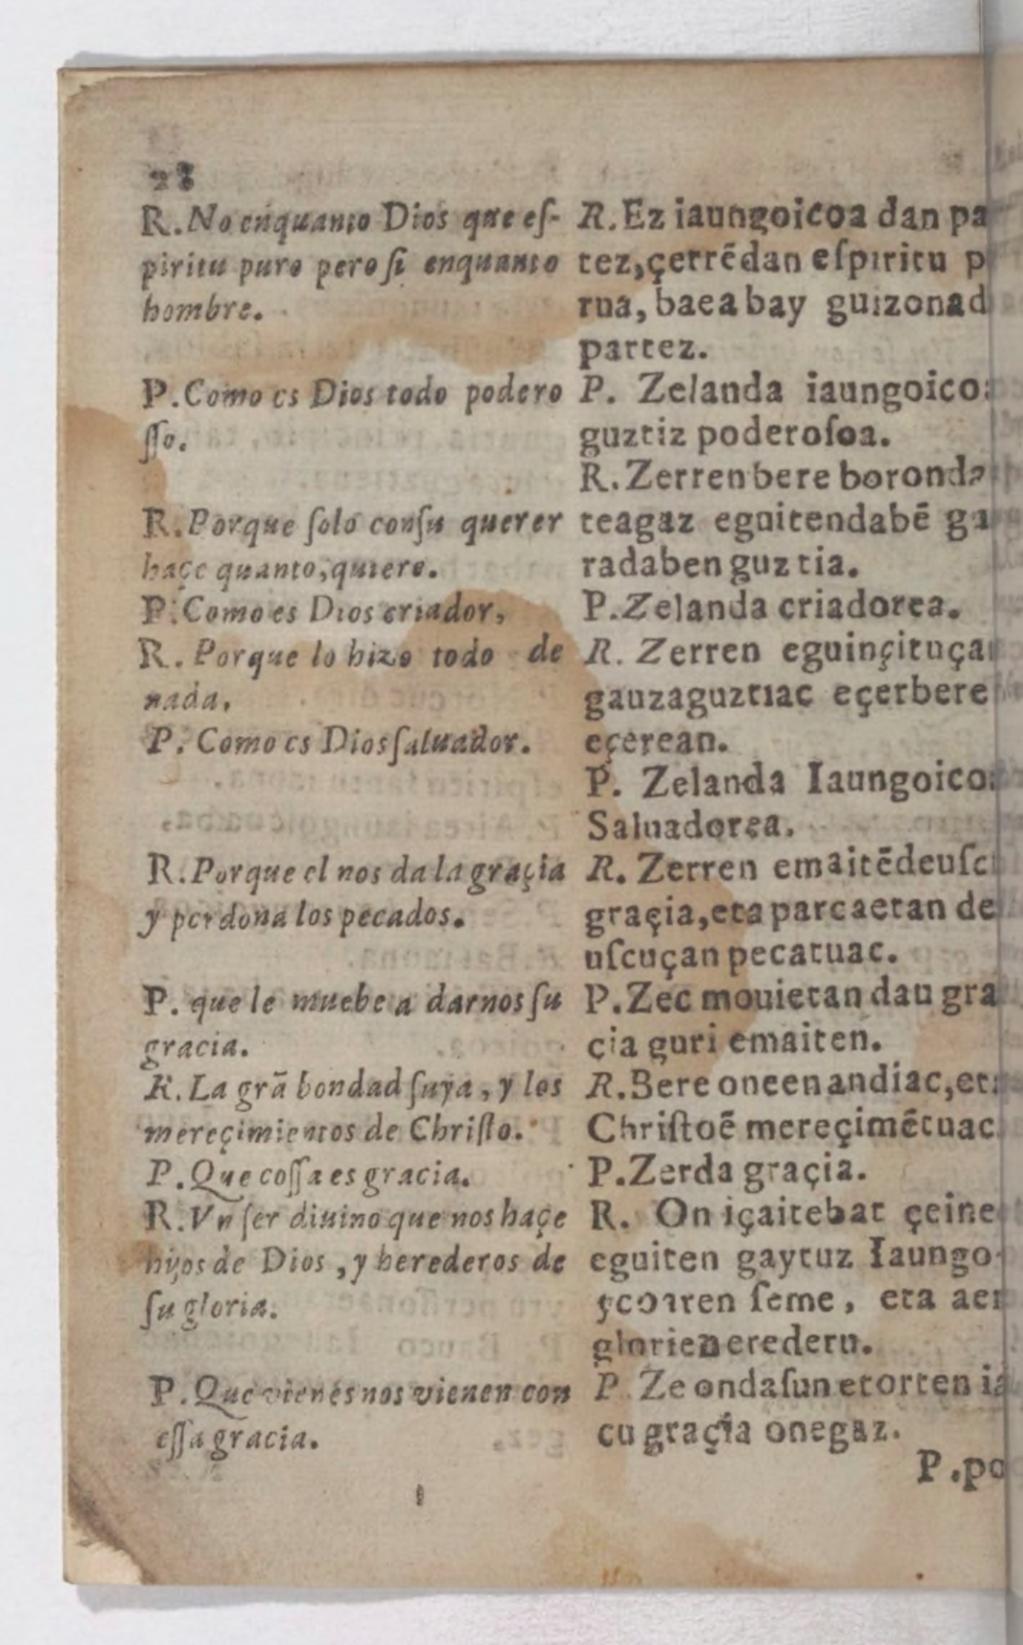 28
R. No enquanto Dios que eſ-
piritu puro pero ſi enquanto
hombre.
P. Como es Dios todo podero
ſſo.
R. Porque ſolo conſu querer
haçe quanto, quiere.
P. Como es Dios criador,
R. Porque lo hizo todo de
nada.
P. Como es Dios ſaluador.
R. Porque el nos da la graçia
y perdona los pecados.
P. que le muebe a darnos ſu
gracia.
R. La grā bondad ſuya, y los
mereçimientos de Chriſto.
P. Que coſſa es gracia.
R. Vn ſer diuino que nos haçe
hijos de Dios, y herederos de
ſu gloria.
P. Que vienes nos vienen con
eſſa gracia.
R. Ez iaungoicoa dan pa
tez, çerrēdan eſpiritu p
rua, baea bay guizonad
partez.
P. Zelanda iaungoico
guztiz poderoſoa.
R. Zerren bere boronda
teagaz eguitendabē ga
radaben guztia.
P. Zelanda criadorea.
R. Zerren eguinçituça
gauzaguztiac eçerbere
eçerean.
P. Zelanda Iaungoico
Saluadorea.
R. Zerren emaitēdeuſc
graçia, eta parcaetan de
uſcuçan pecatuac.
P. Zec mouietan dau gra
çia guri emaiten.
R. Bere oneen andiac, et
Chriſtoē mereçimētuac
P. Zerda graçia.
R. On içaitebat çeine
eguiten gaytuz Iaungo
ycoaren ſeme, eta aer
glorien erederu.
P. Ze ondaſun etorten ia
cu graçia onegaz.
P. po